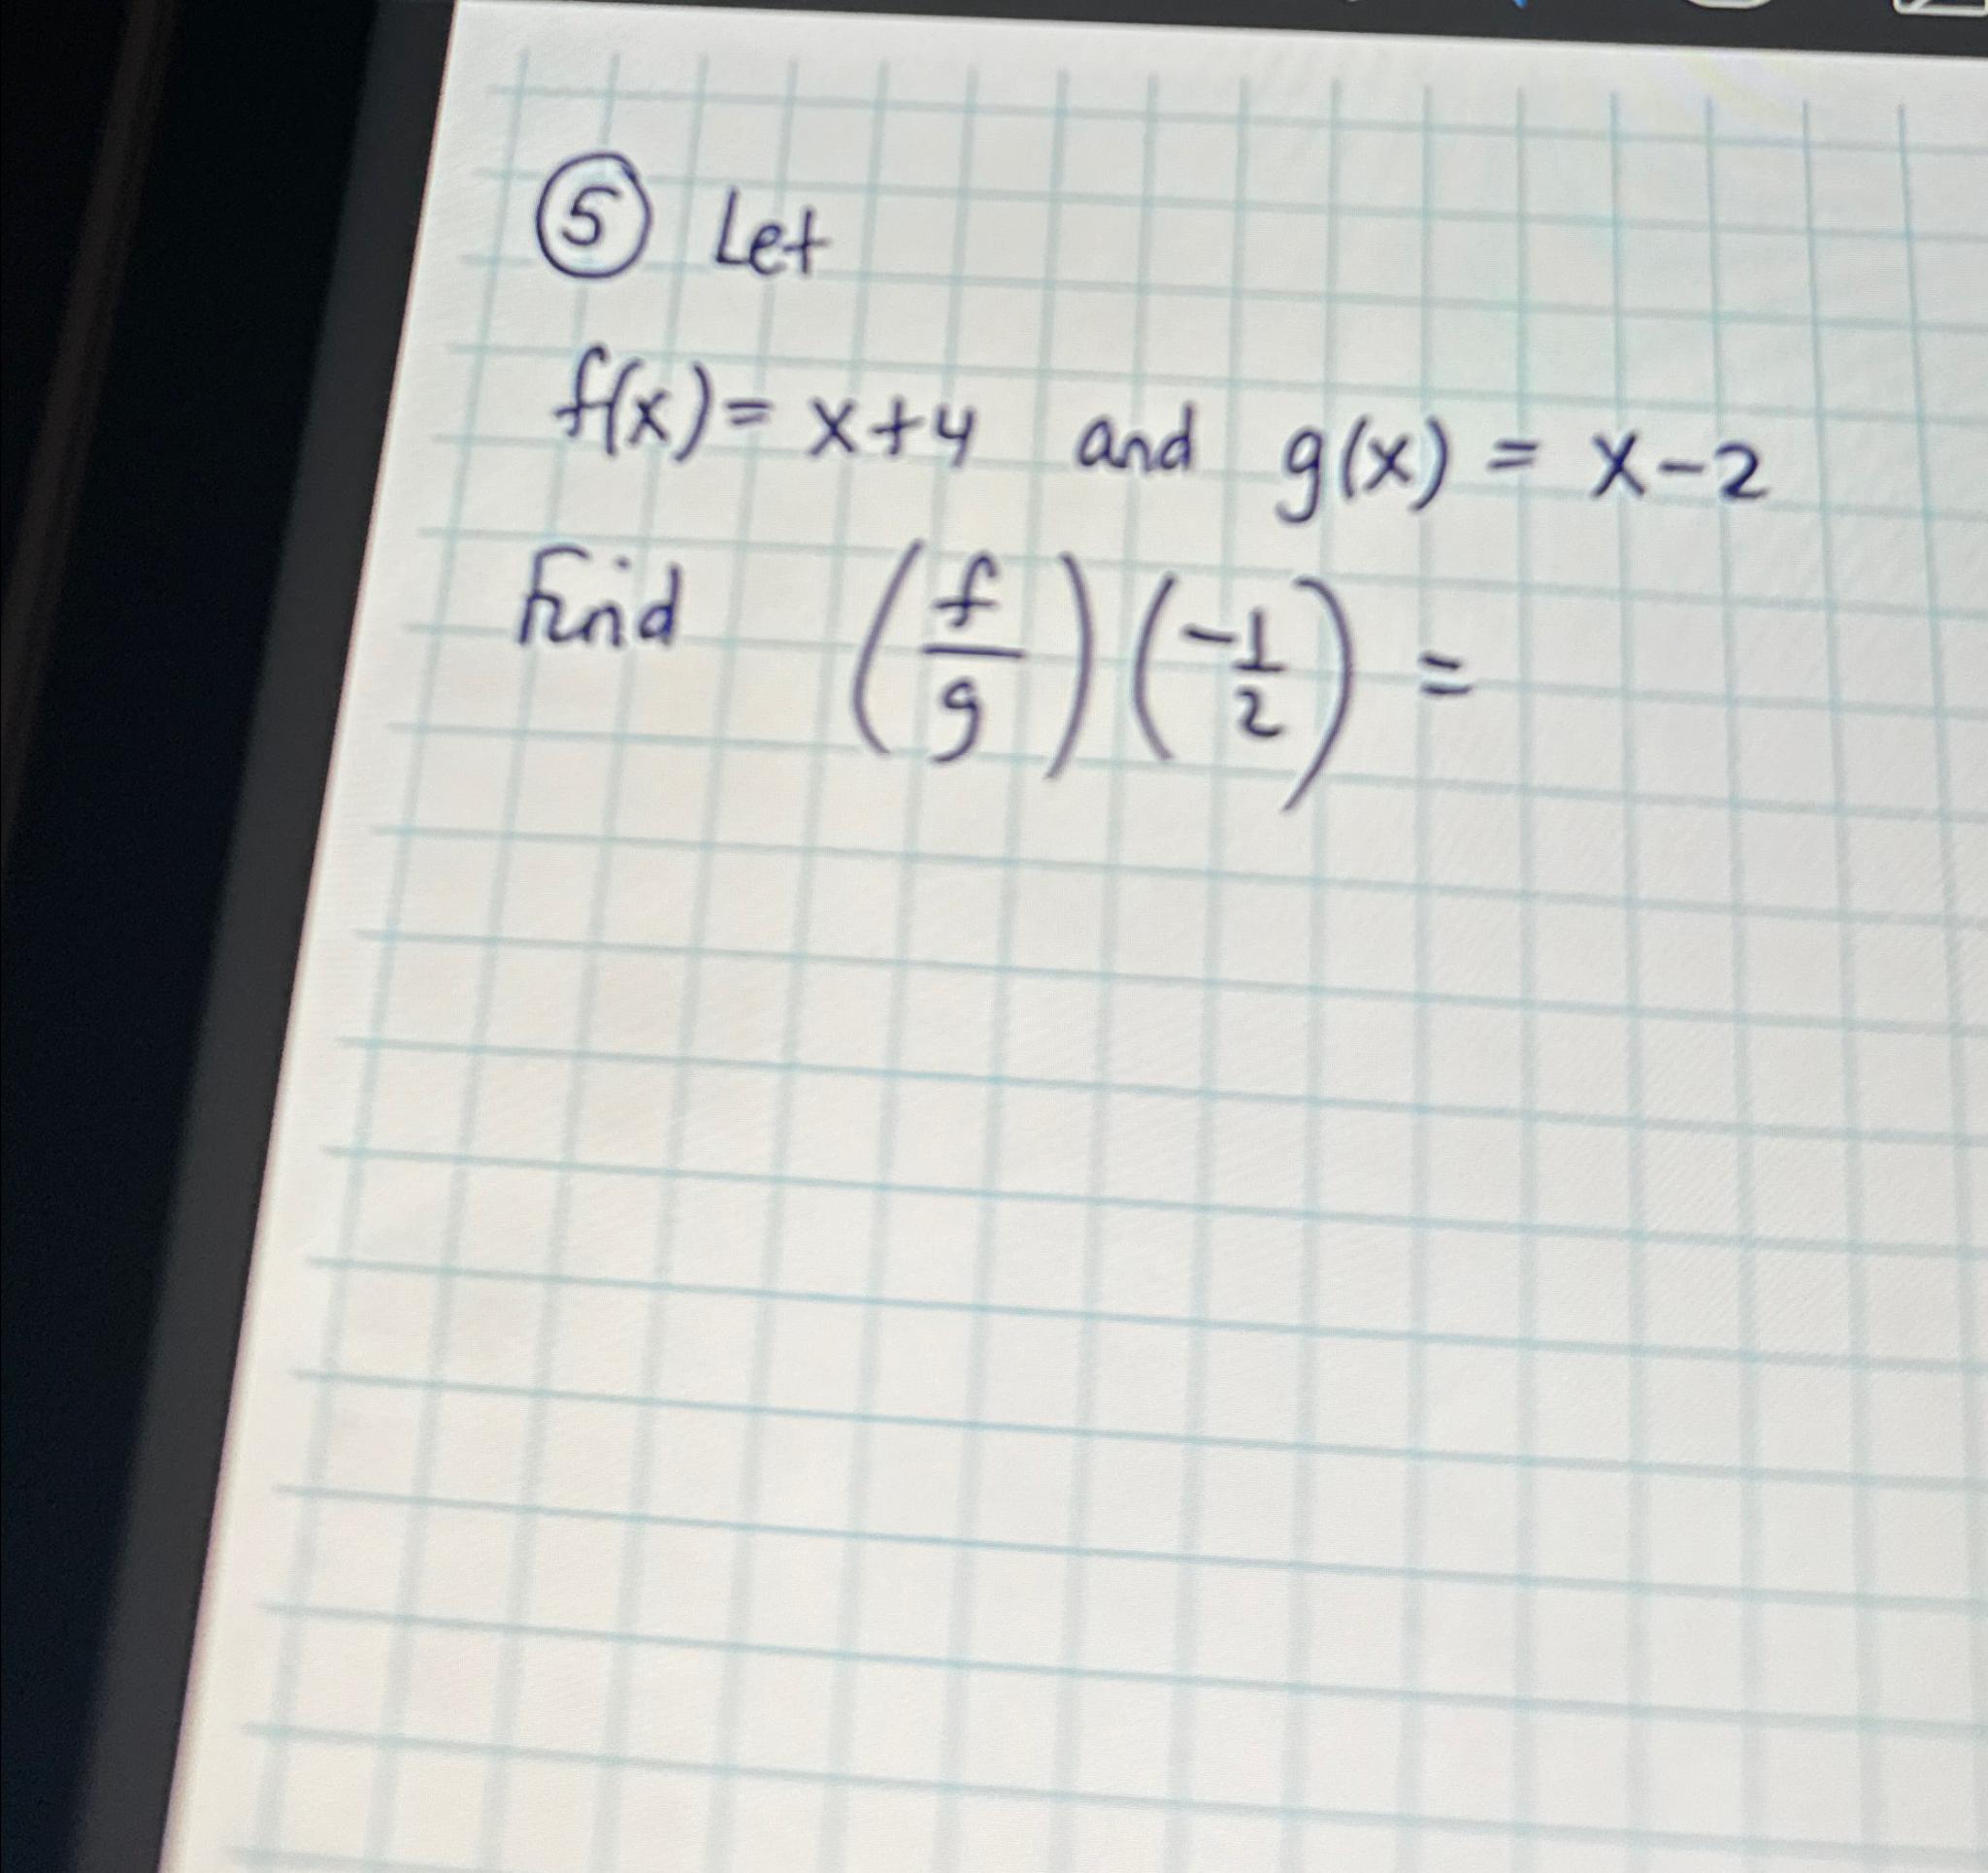 ⑤ Let
f(x) = x+4 and g(x) = x-2
Find (f/g)(-1/2) =